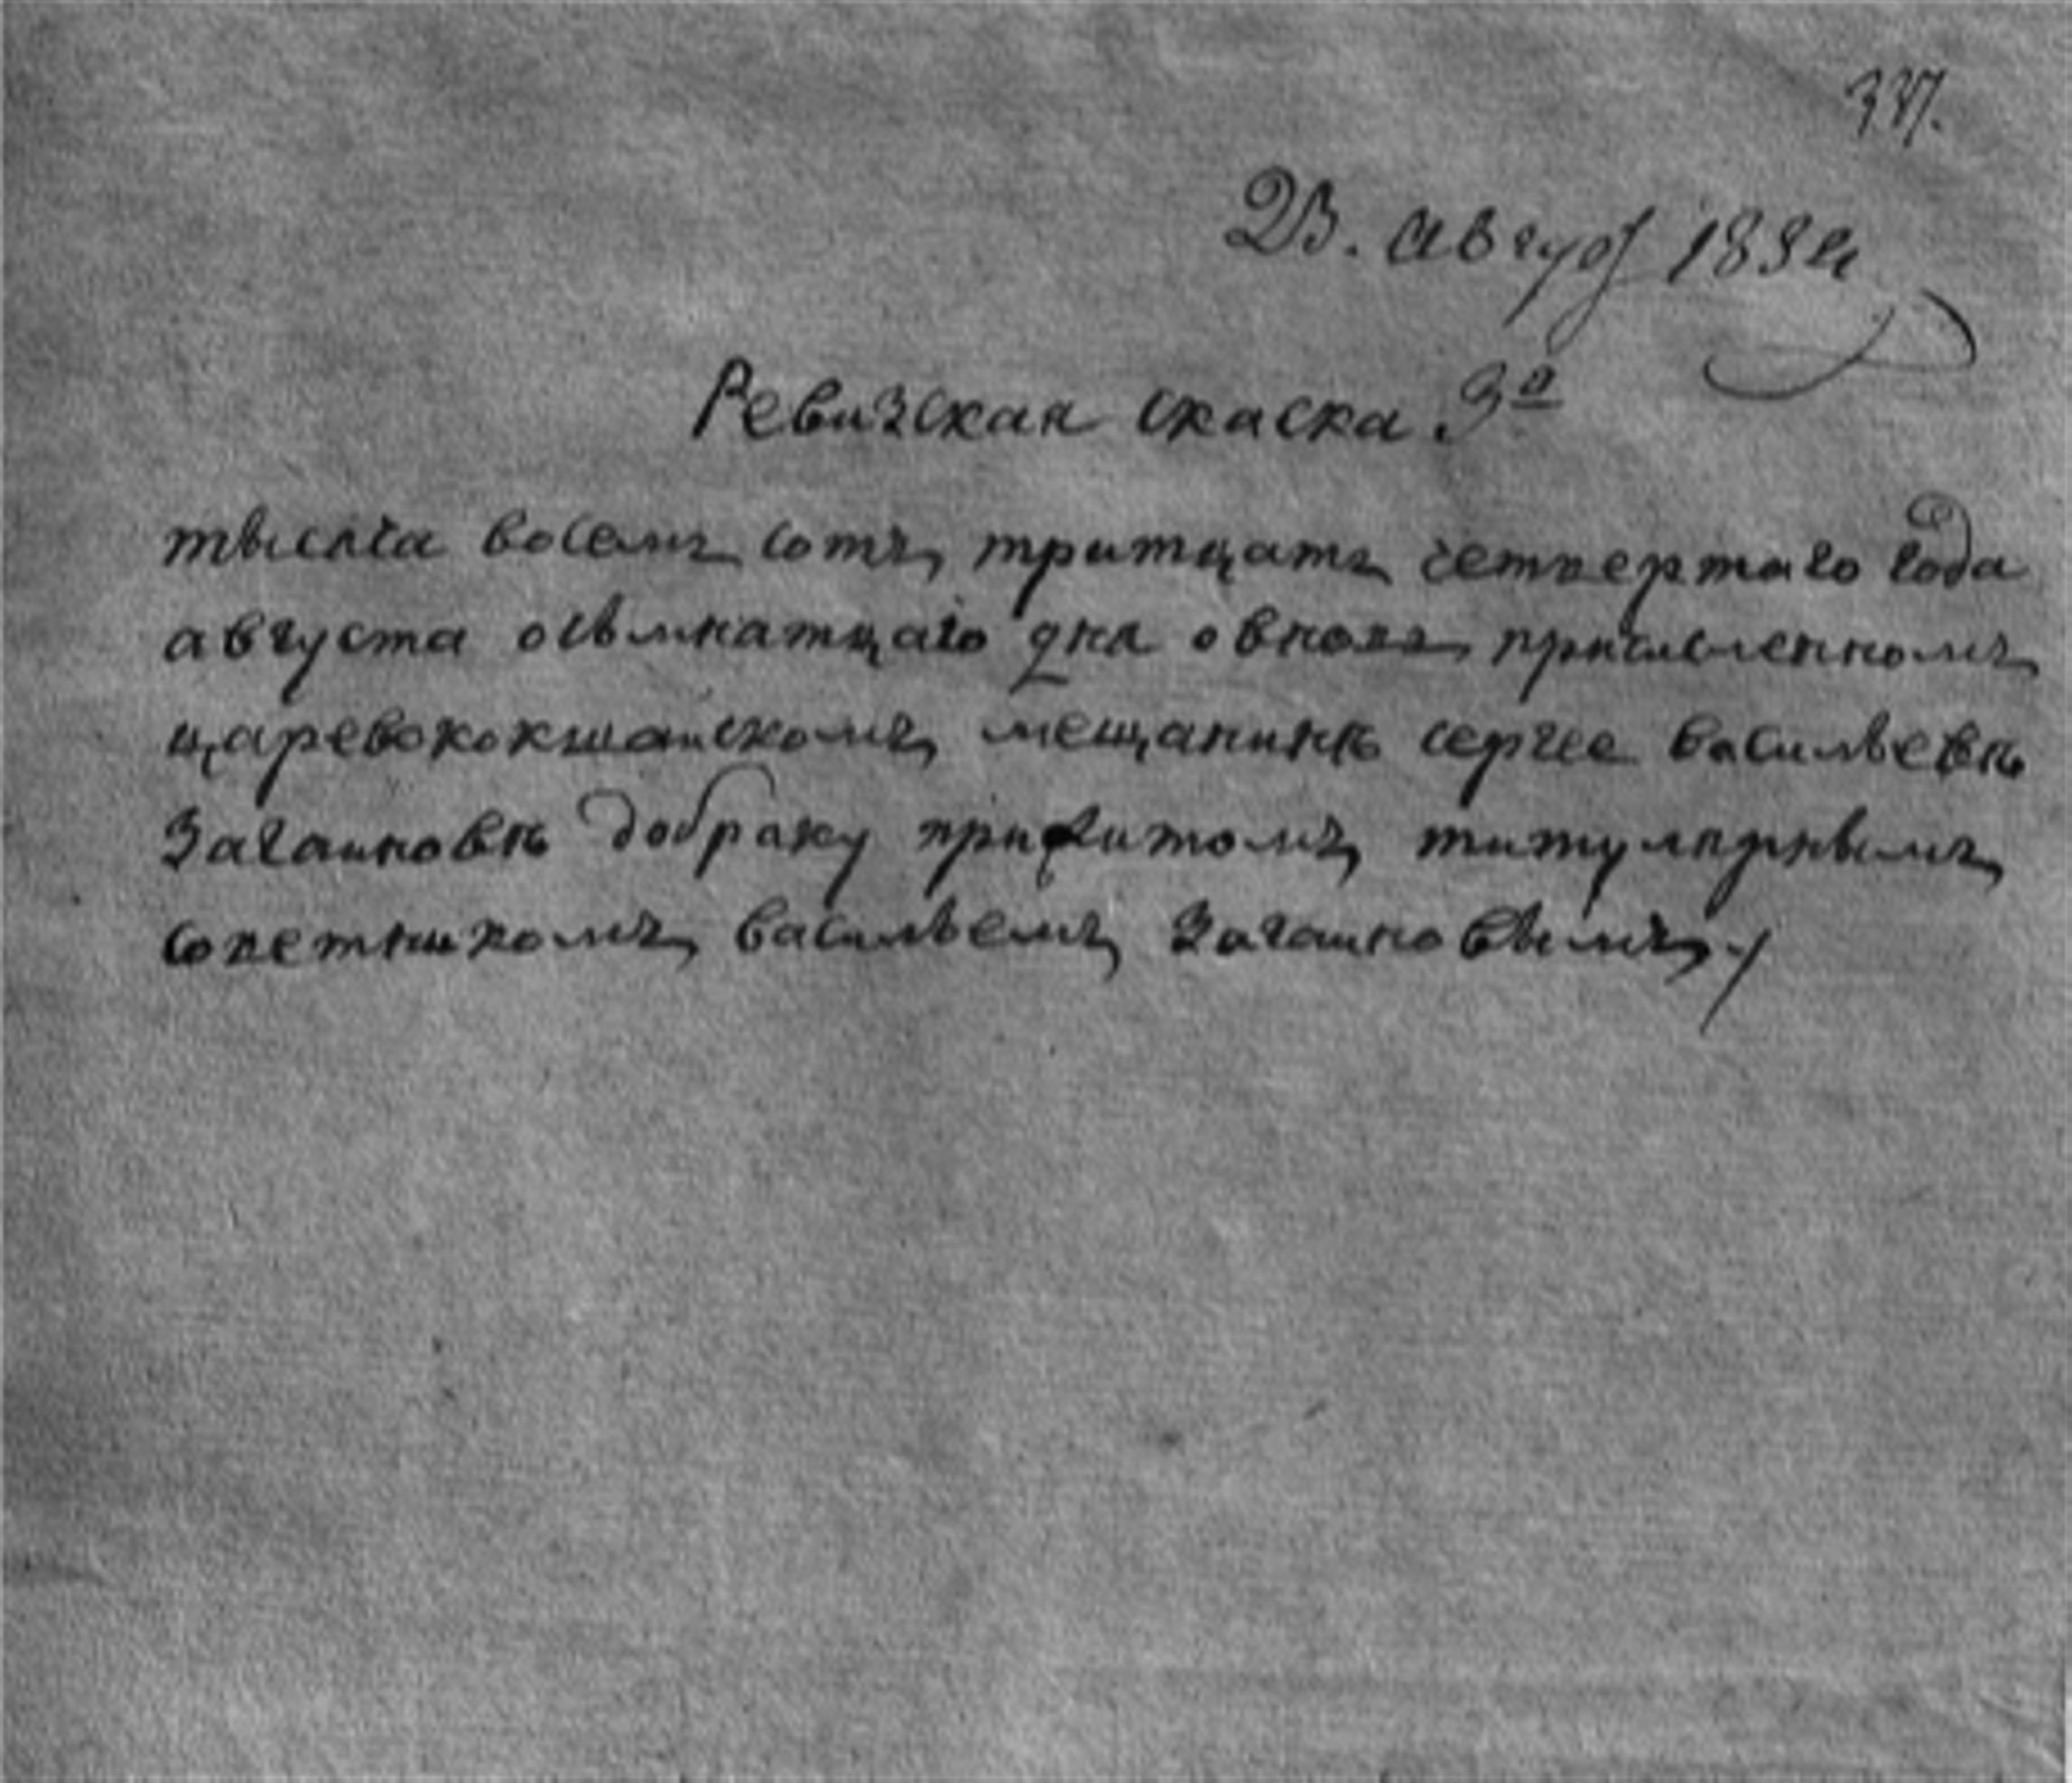 337.
23. август 1834
Ревизская скаска. 3я
тысяча восемъ сотъ, тритцать четвертаго года
августа осьмнатцаго дня о вновь причисленномъ
царевококшайскомъ мещанинѣ сергее васильевѣ
Загаиновѣ добраку прижитомъ титулярнымъ
советникомъ васильемъ Загаиновымъ